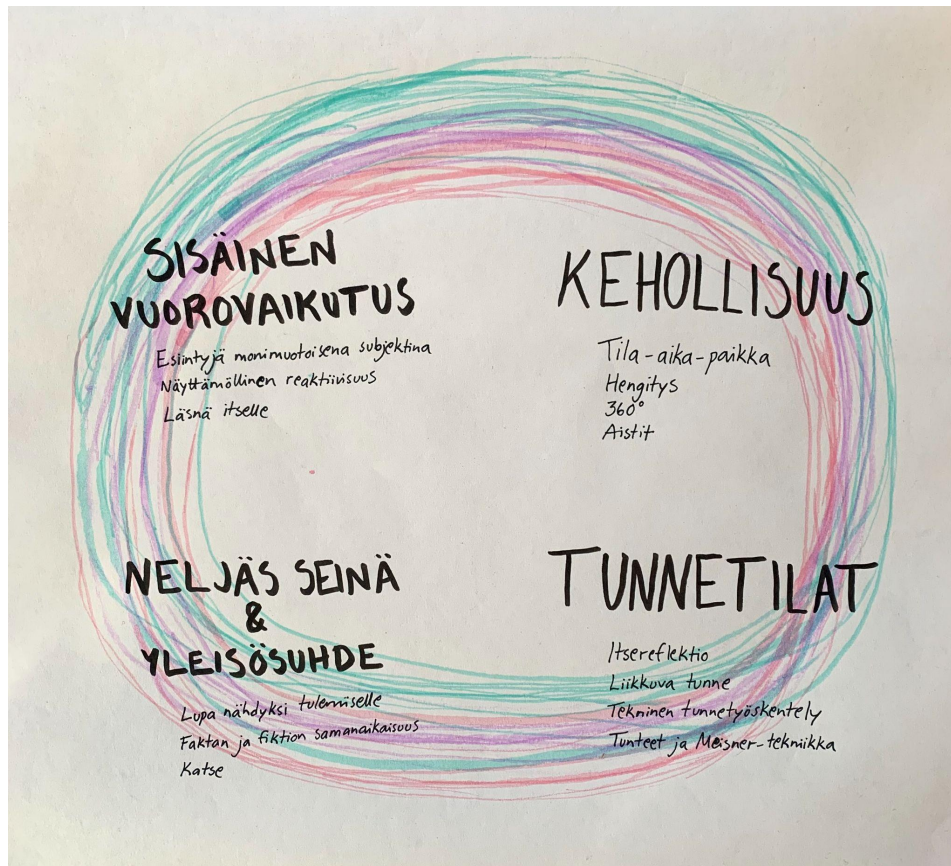 SISÄINEN
VUOROVAIKUTUS
Esiintyjä monimuotoisena subjektina
Näyttämöllinen reaktiivisuus
Läsnä itselle
KEHOLLISUUS
Tila-aika-paikka
Hengitys
360°
Aistit
NELJÄS SEINÄ
&
YLEISÖSUHDE
Lupa nähdyksi tulemiselle
Faktan ja fiktion samanaikaisuus
Katse
TUNNETILAT
Itsereflektio
Liikkuva tunne
Tekninen tunnetyöskentely
Tunteet ja Meisner-tekniikka